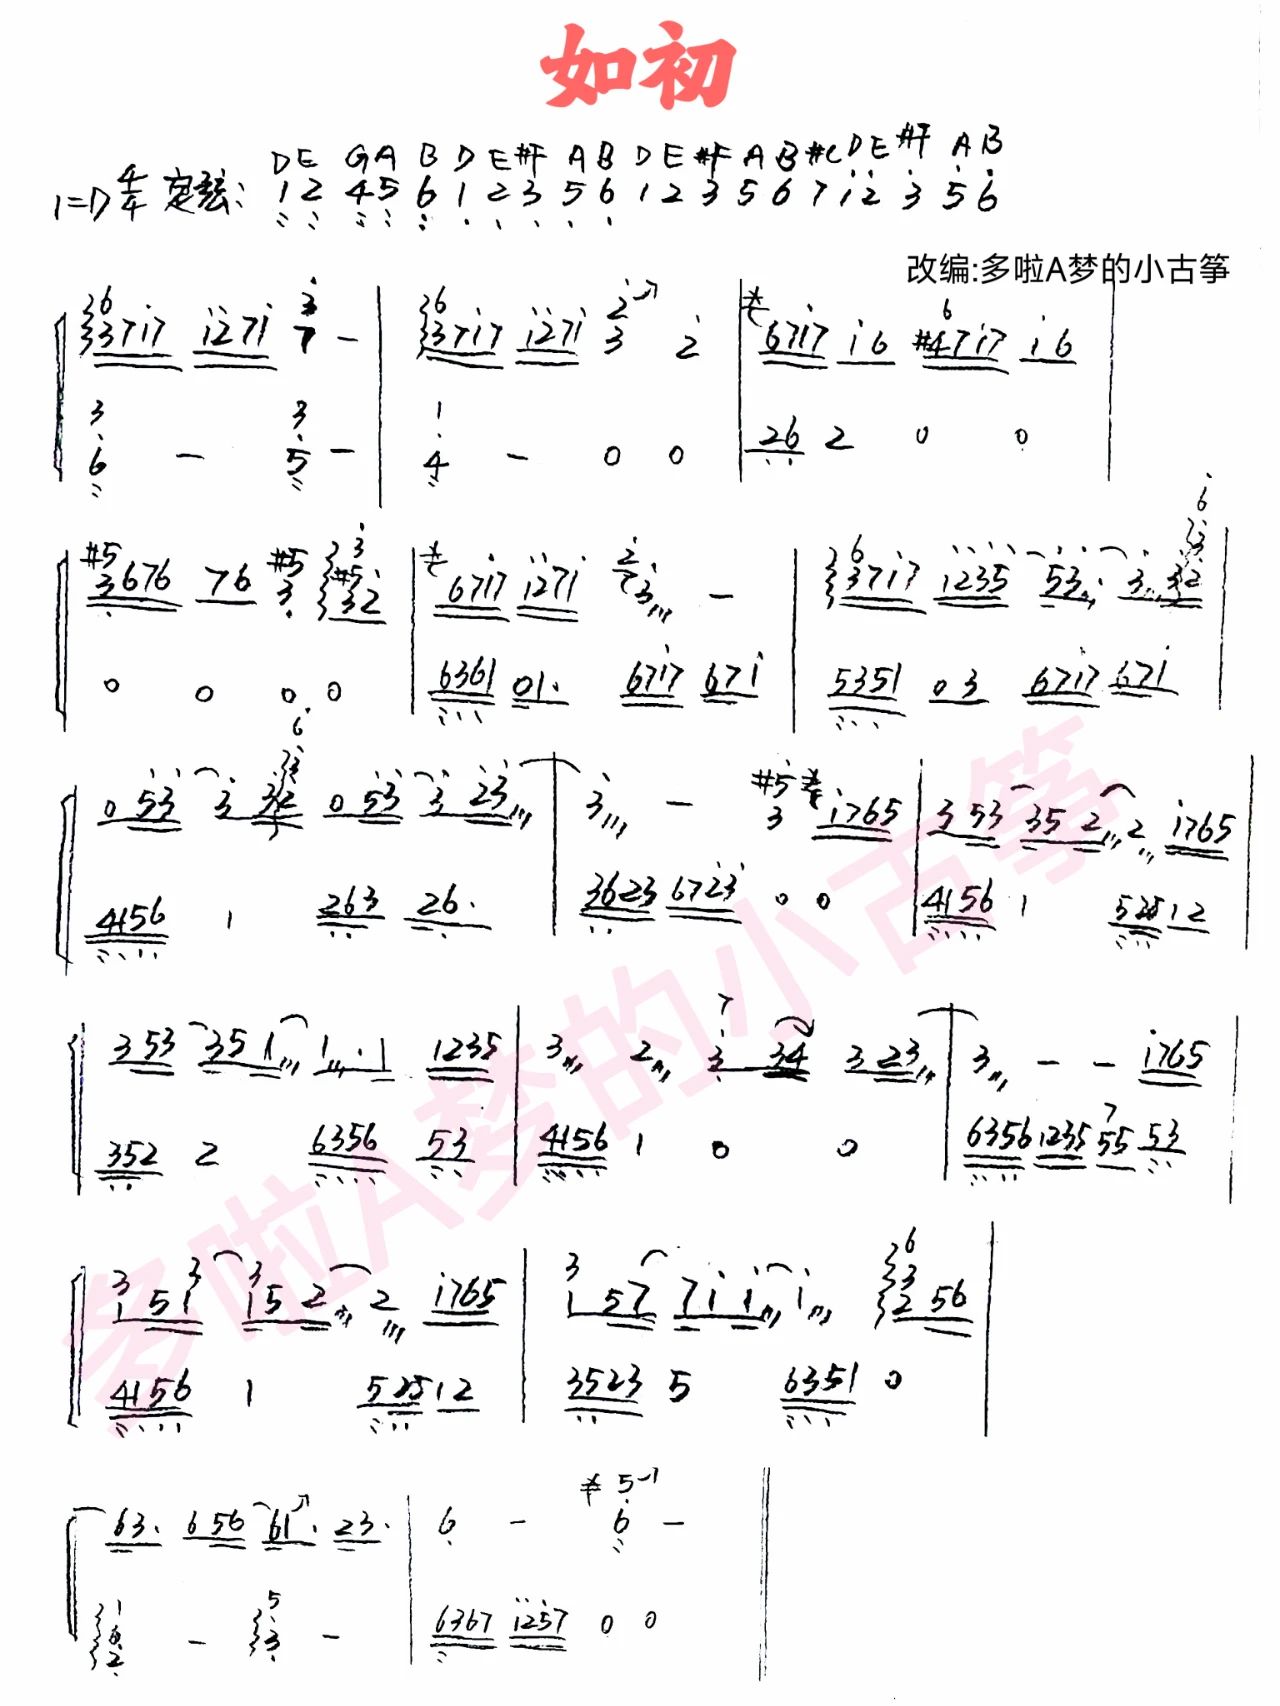 如初
DE GA B D E #F A B D E #F A B #C D E #F A B
1=D 4/4 定弦: 1 2 4 5 6 1 2 3 5 6 1 2 3 5 6 7 1 2 3 5 6
改编:多啦A梦的小古筝
6 3 3717 1271 3 7 - 6 3 3717 1271 2 3 2 6717 1 6 #4717 6 1 6
3 6 - 3 5 - 1 4 - 0 0 26 2 0 0
#5 3676 76 #5 3 3 #5 32 6717 1271 2 3 - 6 3717 1235 53. 3 32
0 0 0 0 6361 01. 6717 671 5351 03 6717 671
0 53 3 32 0 53 3 23 3 - #5 3 1765 3 53 35 2 2 1765
4156 1 263 26. 3623 6723 0 0 4156 1 525 12
3 53 35 1 1. 1 1235 3 2 7 3 34 3 23 3 - - 1765
352 2 6356 53 4156 1 0 0 6356 1235 7 55 53
3 1 5 3 1 3 1 5 2 2 1765 3 1 57 71 1 1 6 3 2 56
4156 1 525 12 3523 5 6351 0
63. 6 56 61. 23. 6 - 5 6 -
1 6 2 - 5 3 - 6367 1257 0 0
多啦A梦的小古筝